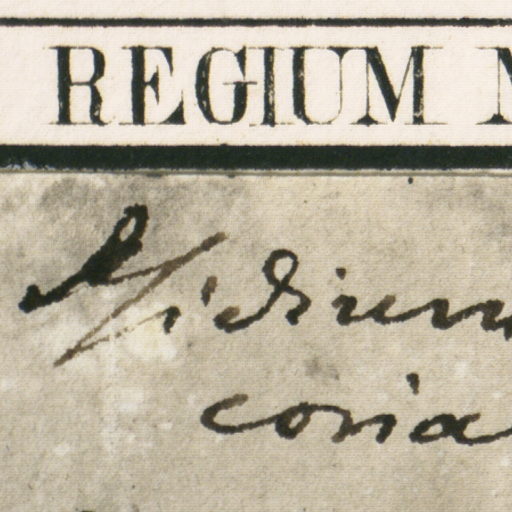 REGIUM M
Aspidium
coria